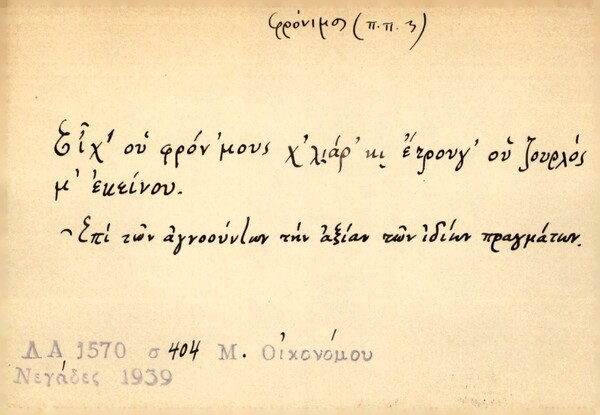 φρόνιμος (π.π. 3)
Εἶχ' οὑ φρόν'μους χ'λιάρ' κι ἔτρουγ' οὑ ζουρλός
μ' ἐκείνου.
~ Ἐπὶ τῶν ἀγνοούντων τὴν ἀξίαν τῶν ἰδίων πραγμάτων.
Λ Α 1570 σ 404 Μ. Οἰκονόμου
Νεγάδες 1939